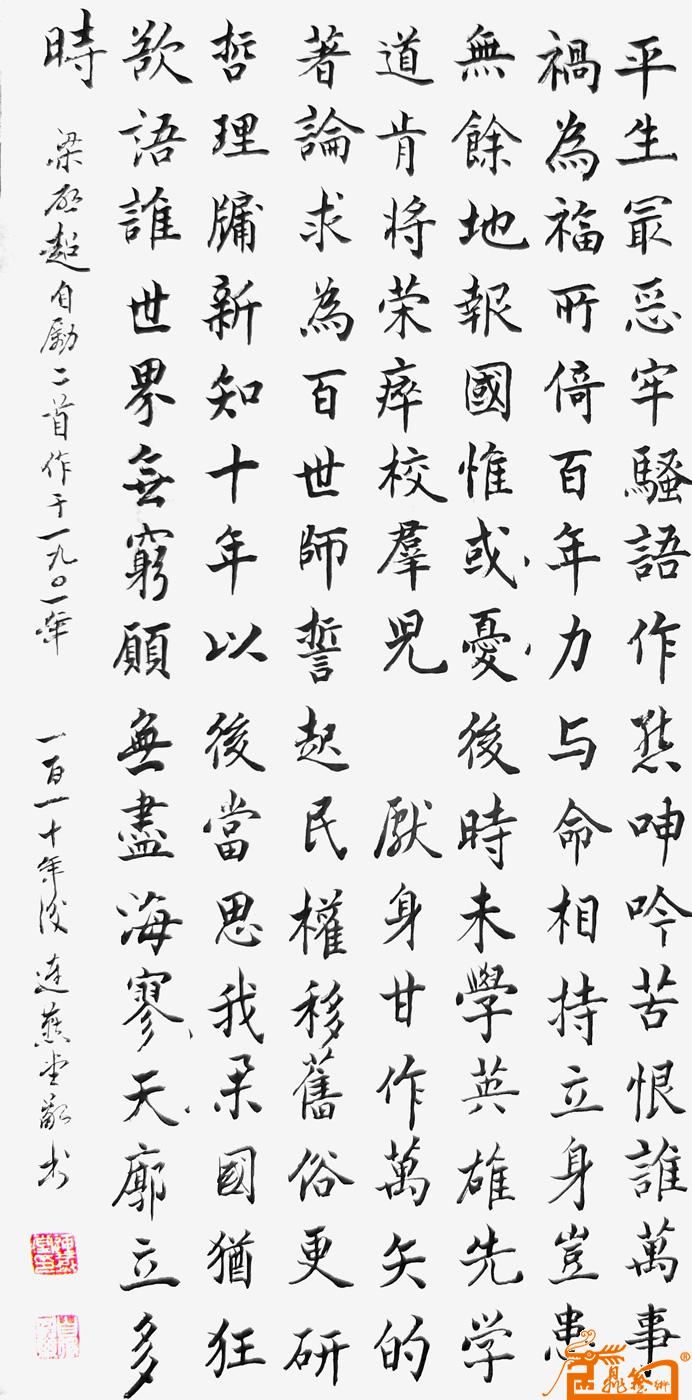 平生冣惡牢騷語作態呻吟苦恨誰萬事
禍為福所倚百年力与命相持立身豈患
無餘地報國惟或憂後時未學英雄先学
道肯将荣瘁校羣児 獻身甘作萬矢的
著論求為百世師誓起民權移舊俗更研
哲理牖新知十年以後當思我舉國猶狂
欲語誰世界無窮願無盡海寥天廓立多
時
梁启超自励二首作于一九〇一年 一百一十年後 连燕堂敬书